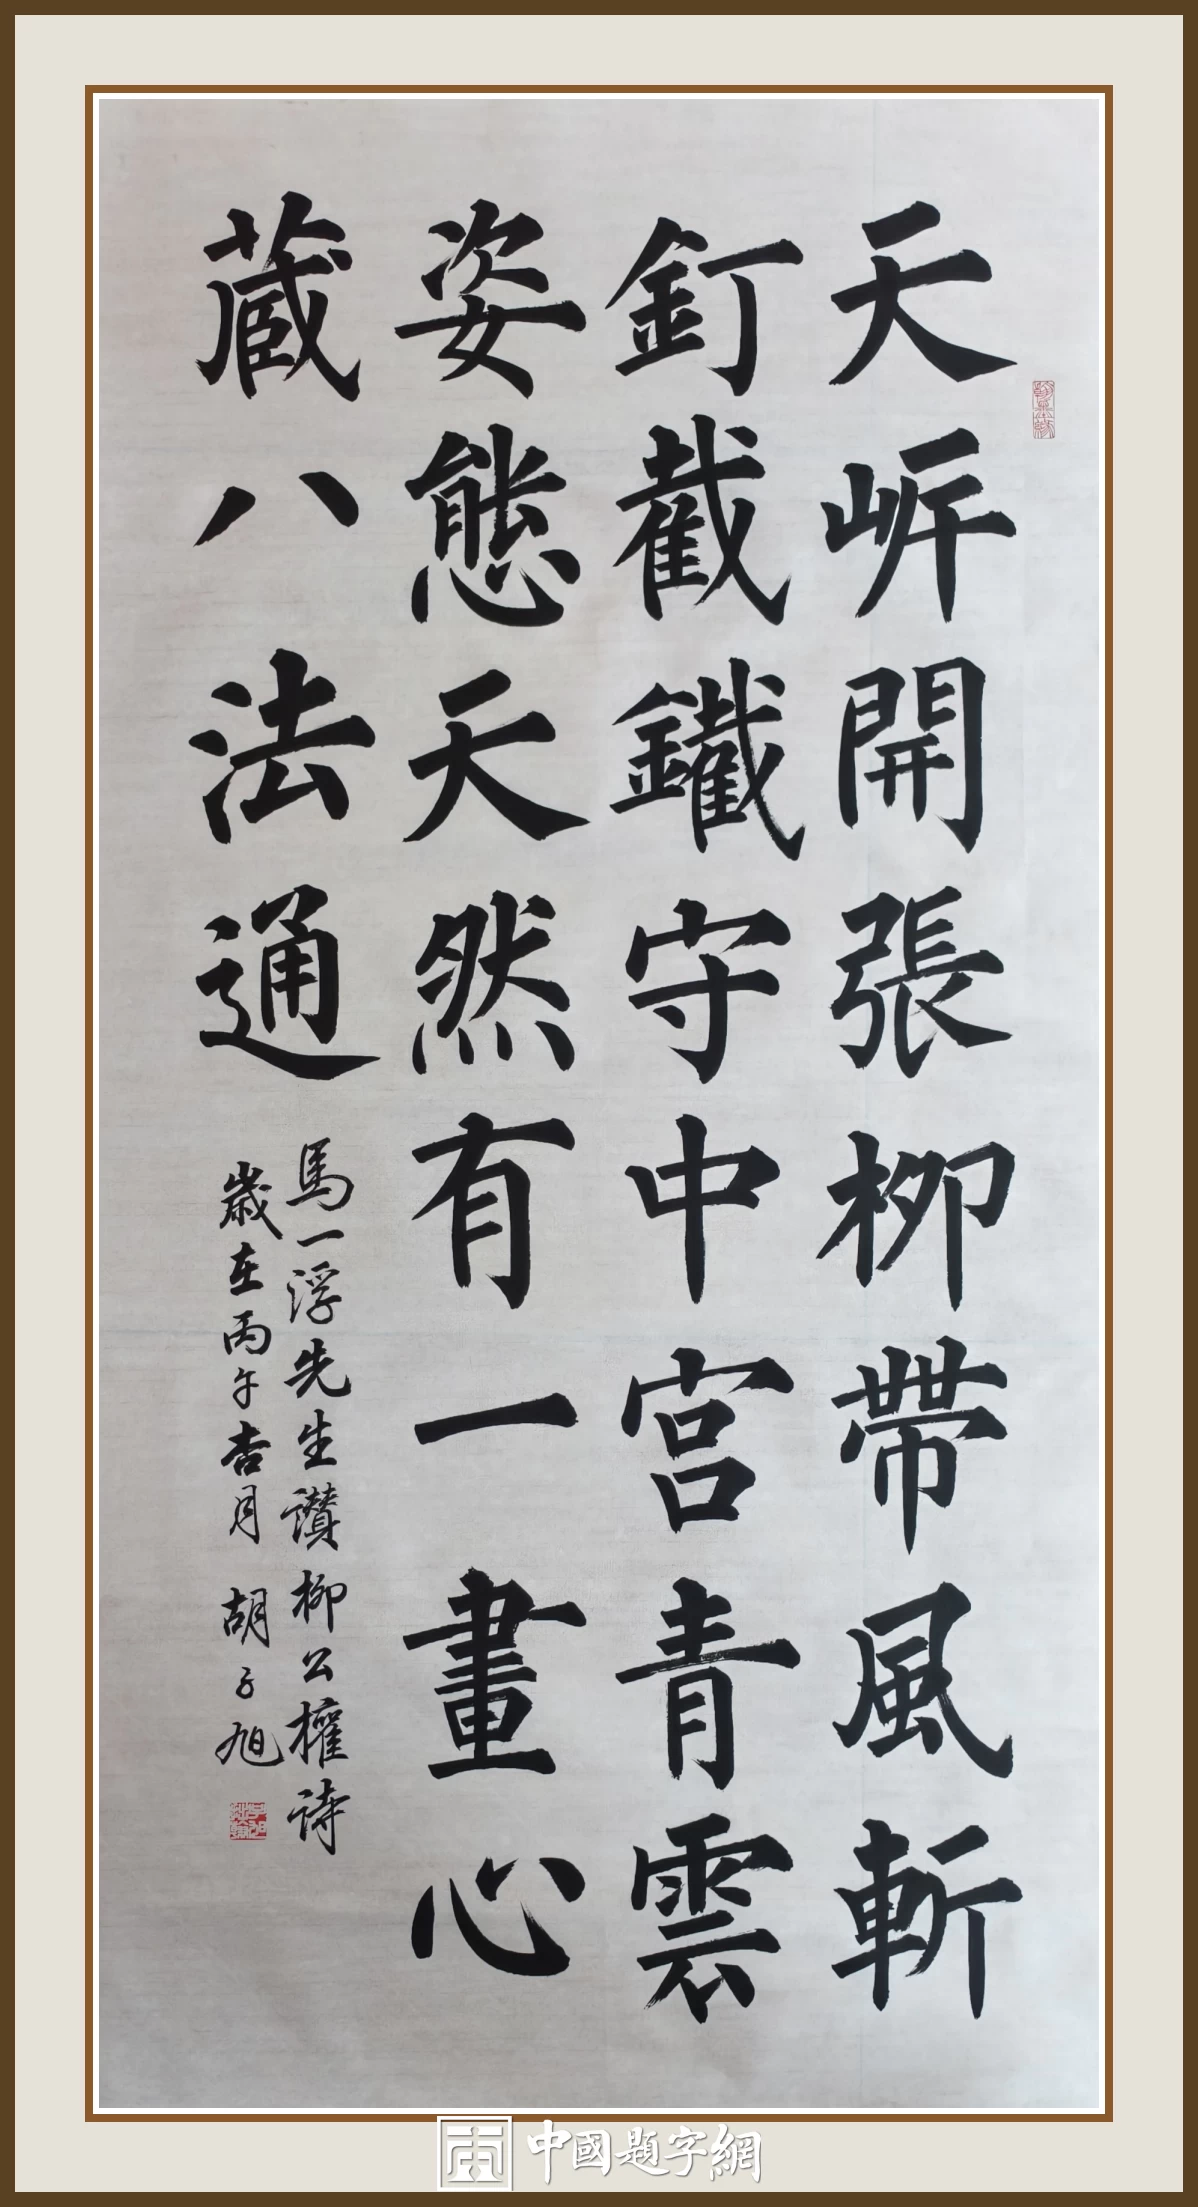 天岓開張柳帶風斬
釘截鐵守中宮青雲
姿態天然有一畫心
蔵八法通
馬一浮先生讚柳公權詩
歲在丙午杏月 胡子旭
中國題字網